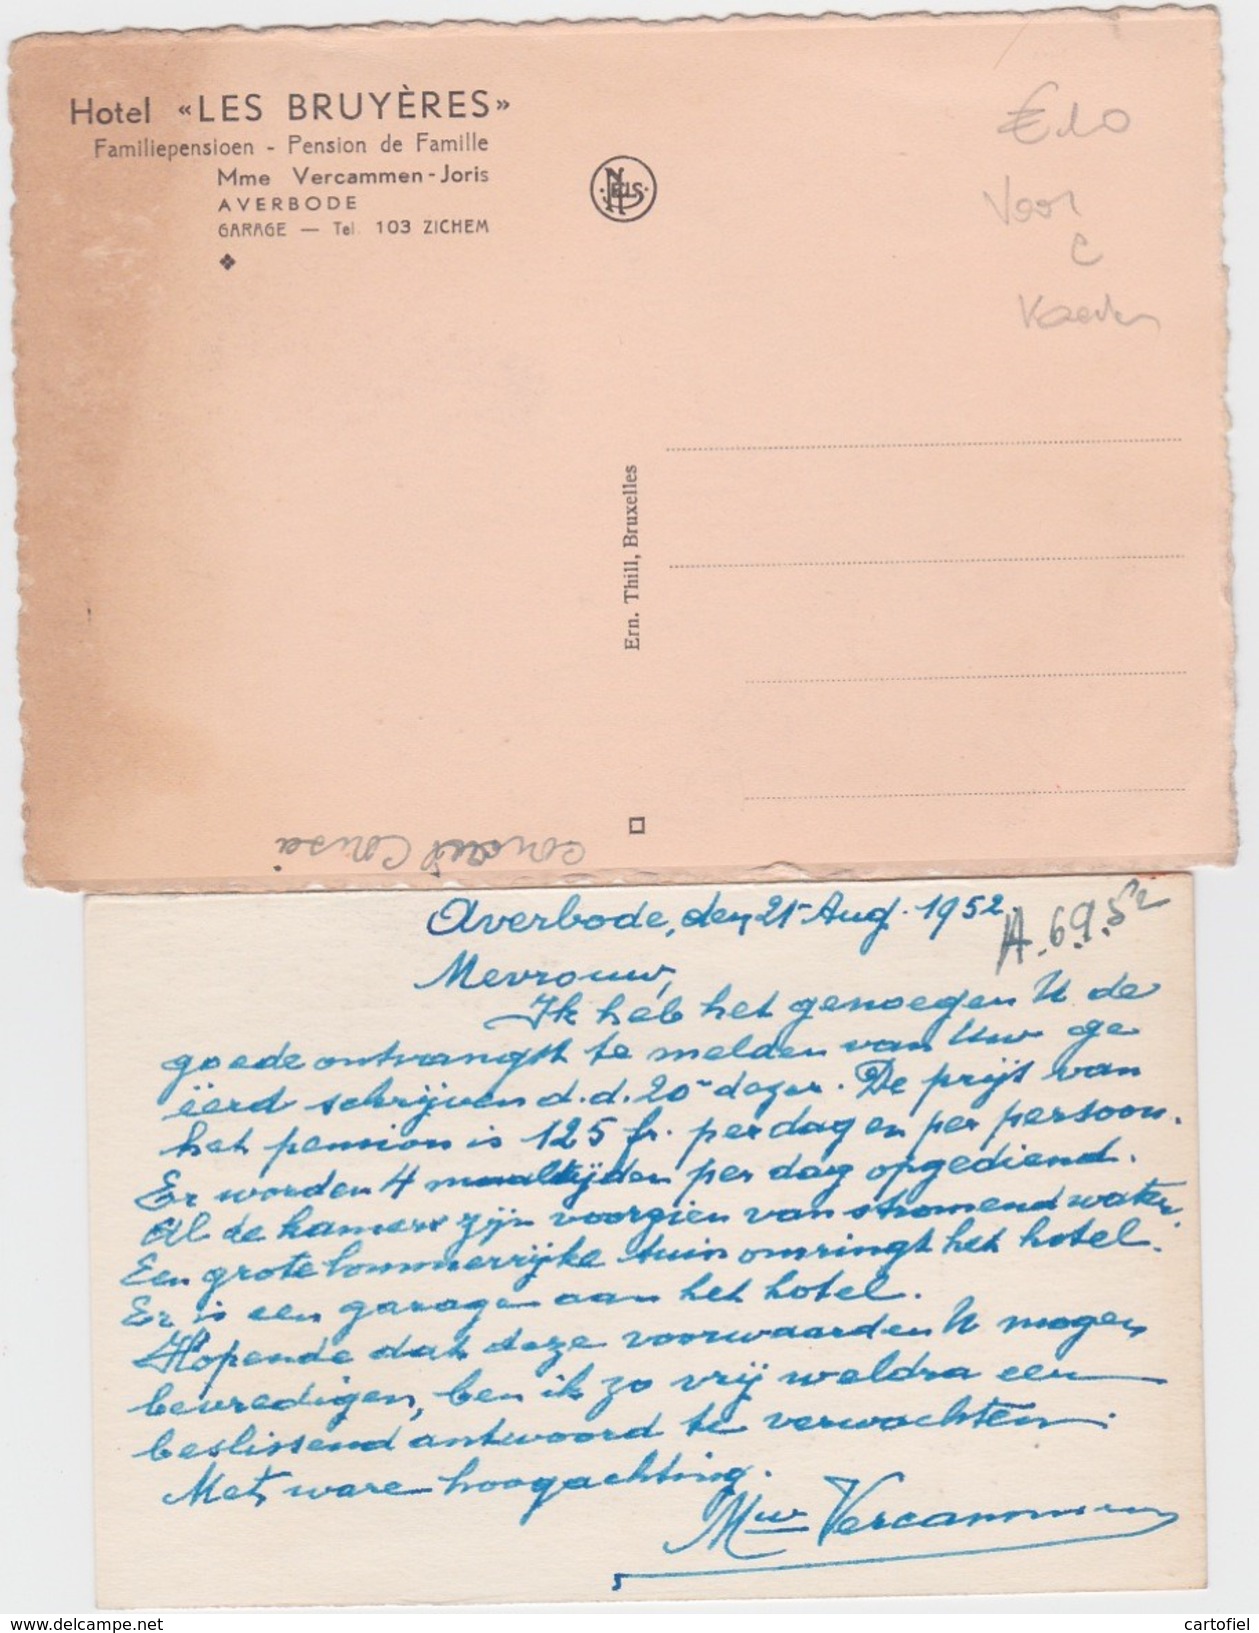 Hotel «LES BRUYÈRES»
Familiepensioen - Pension de Famille
Mme Vercammen-Joris
AVERBODE
GARAGE — Tel. 103 ZICHEM
NELS
€10
Voor
2
Kaarten
Ern. Thill, Bruxelles
Averbode, den 21 Aug. 1952.
A.69.52
Mevrouw,
Ik heb het genoegen U de
goede ontvangst te melden van Uw ge
ëerd schrijven d.d. 20 dezer. De prijs van
het pension is 125 fr. per dag en per persoon.
Er worden 4 maaltijden per dag opgediend.
Al de kamers zijn voorzien van stromend water.
Een grote lommerrijke tuin omringt het hotel.
Er is een garage aan het hotel.
Hopende dat deze voorwaarden U mogen
bevredigen, ben ik zo vrij weldra een
beslissend antwoord te verwachten.
Met ware hoogachting.
Mw Vercammen
www.delcampe.net
cartofiel